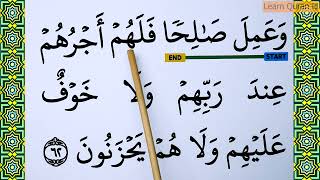 Learn Quran
وَعَمِلَ صَٰلِحًا فَلَهُمۡ أَجۡرُهُمۡ
END START
عِندَ رَبِّهِمۡ وَلَا خَوۡفٌ
عَلَيۡهِمۡ وَلَا هُمۡ يَحۡزَنُونَ ٦٢